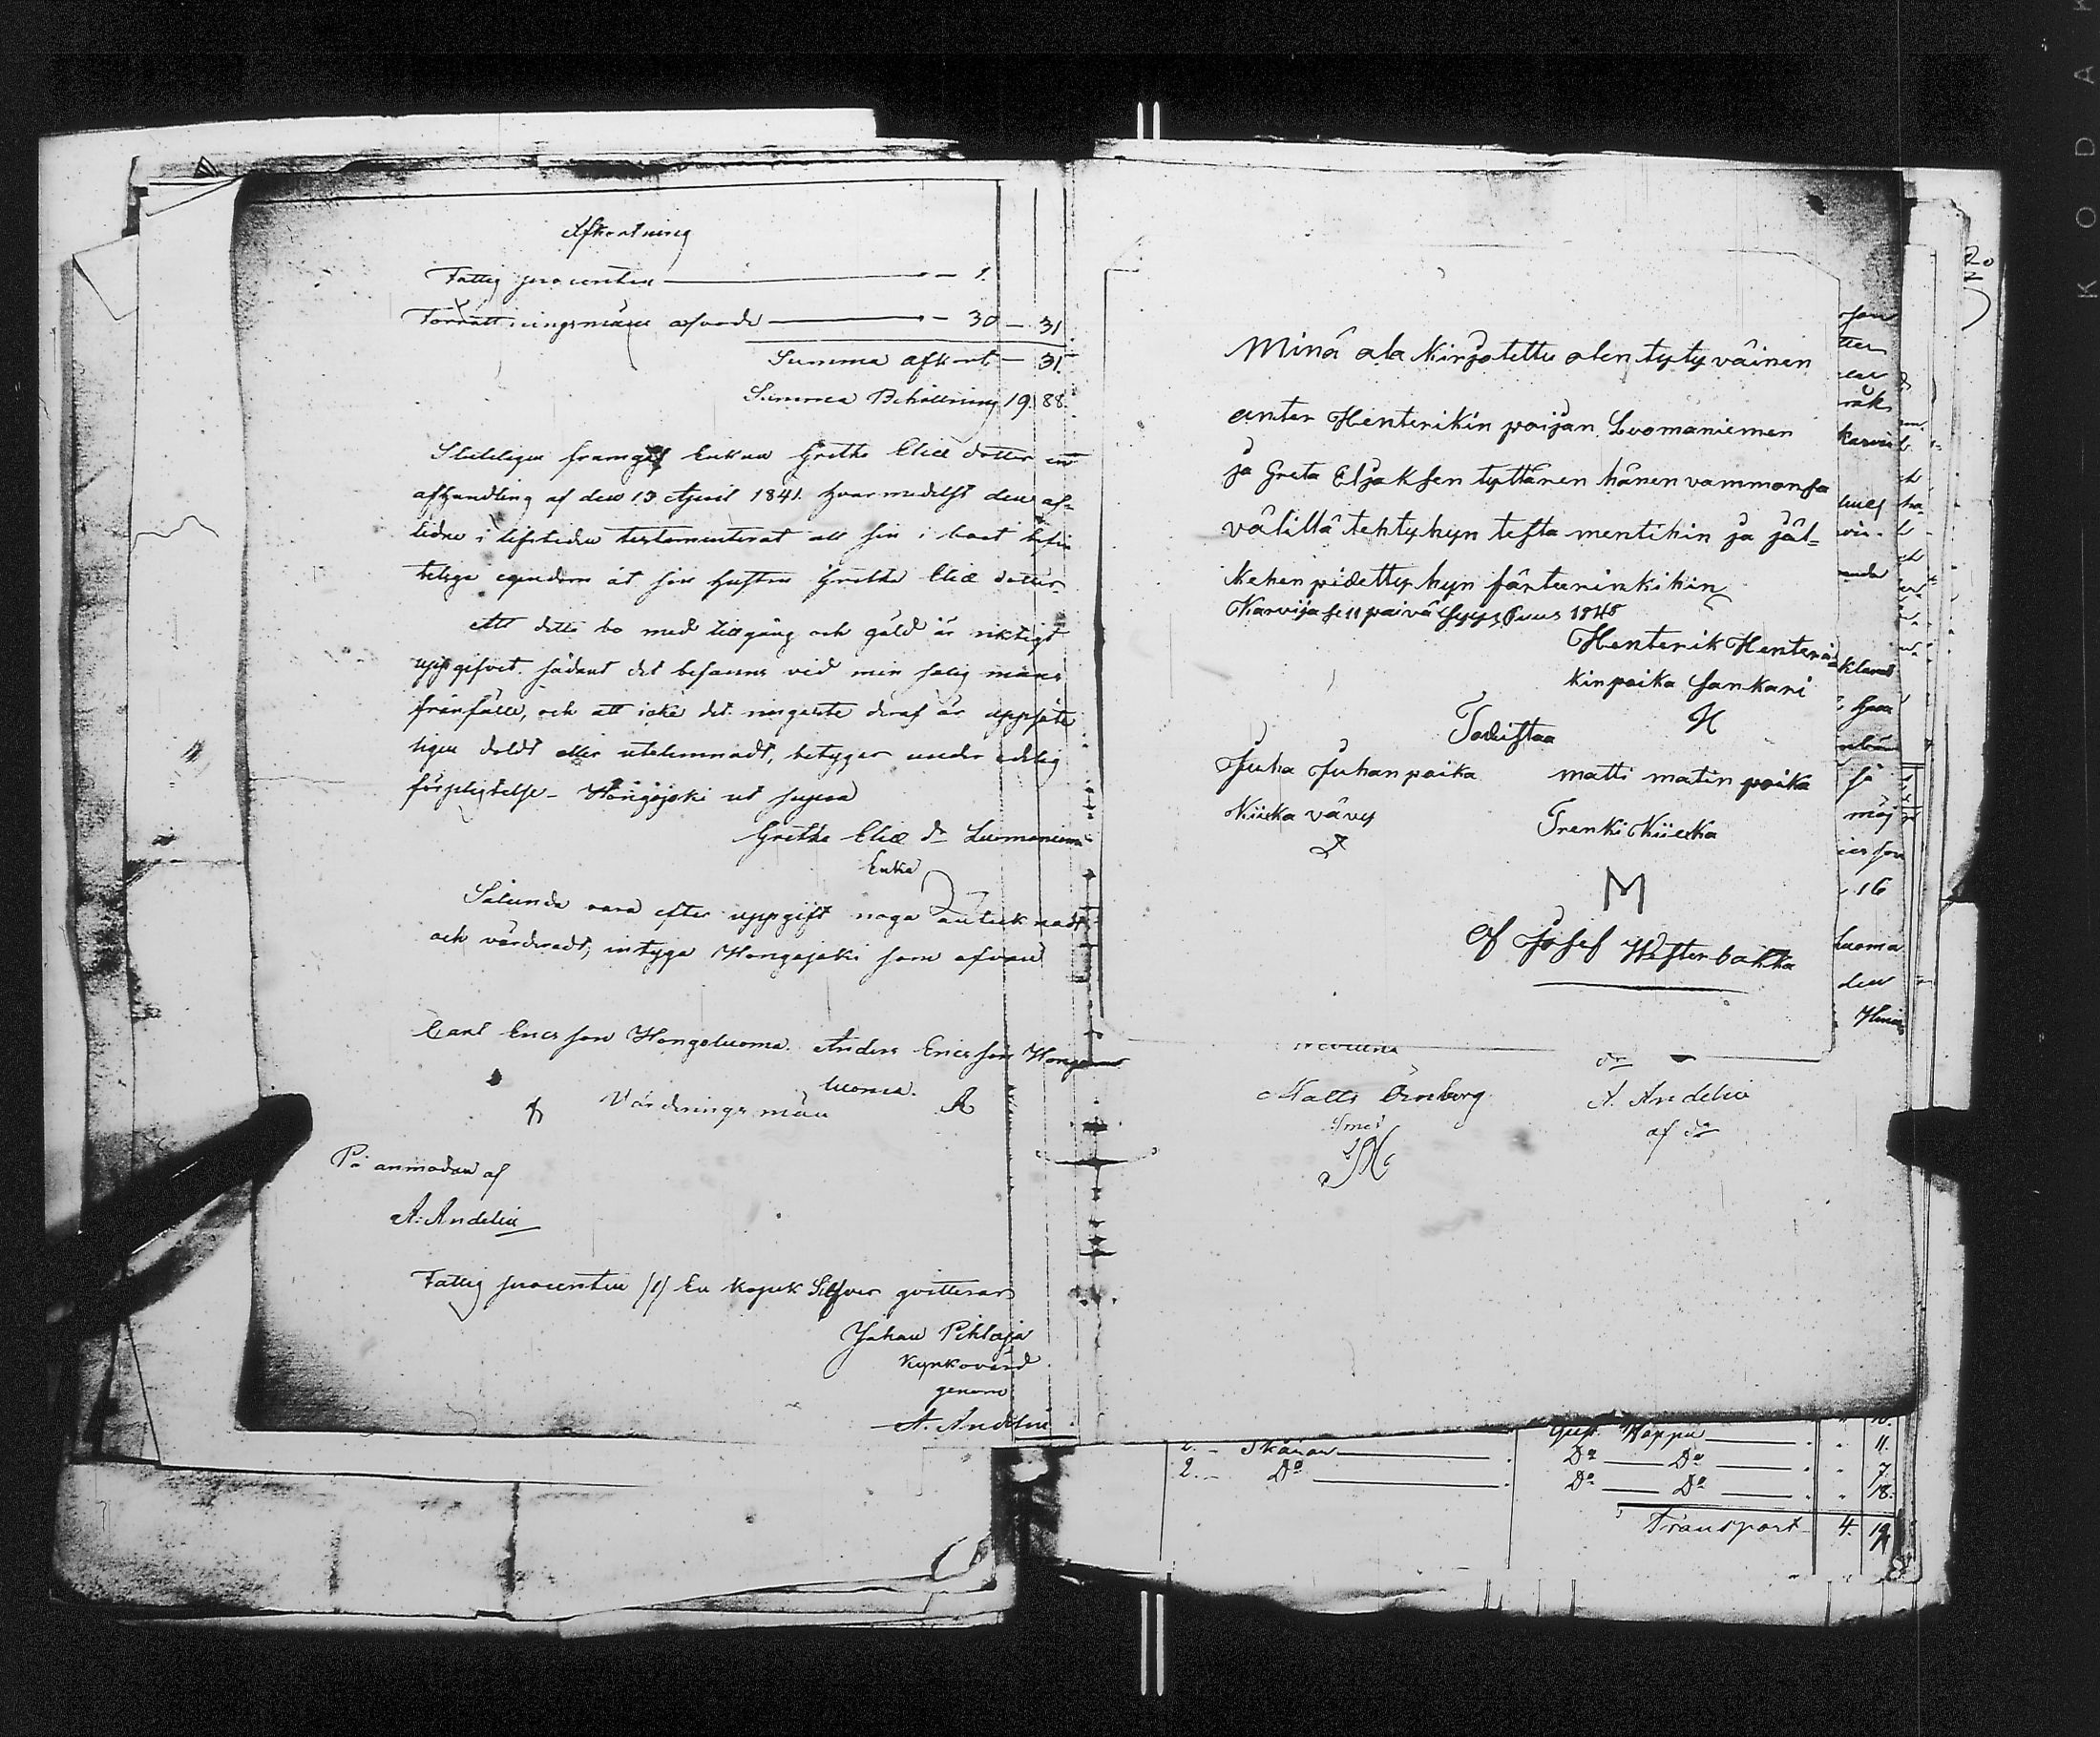 Afkortning
Fattig procenten — 1.
Förrättningsmäns arfvode — 30 — 31
Summa afkort — 31.
Summa Behållning 19. 88.
Slutligen framgaf Enkan Gretha Eliæ dotter en
afhandling af den 13 April 1841. hvarmedelst den af-
lidne i lifstiden testamenterat all sin i boet befin
telige egendom åt sin hustru Gretha Eliæ dotter.
Att detta bo med tillgång och gäld är riktigt
uppgifvet sådant det befanns vid min salig mans
frånfälle, och att icke det ringaste deraf är uppsåte
ligen doldt eller utelemnadt, betygar under edelig
förpligtelse - Hongojoki ut supra
Gretha Eliæ dr Luomaniemi
Enka
Sålunda vara efter uppgift noga antecknadt
och värderadt, intyga Hongojoki som ofvan
Carl Ericsson Hongoluoma. Anders Ericsson Hongo
luoma.
Värderingsmän
På anmodan af
A: Andelin
Fattig procenten /1/ En kopek Silfver qvitterar
Johan Pihlaja
Kyrkovärd
genom
A. Andelin
Minä ala Kirjotettu olen tytyväinen
anter Henterikin poijan Luomaniemen
ja Greta Eljaksen tyttären hänen vammonsa
välillä tehtyhyn testa mentihin ja jäl=
Kehen pidettyhyn färteerinkihin
Karvija se 11 päivä Syys Kuus 1848
Henterik Henteri=
kin poika Sankari
H
Todistaa
Juha Juhan poika matti matin poika
Niiska vävy Trenki Kiiska
M
af Josef Westerbakka
dr
Matts Örnberg A. Andelin
Smed af dr
2. - Skåror Gust. Kappu 11.
2. - Do Do Do 7
Do Do 18.
Transport 4. 19
KODAK